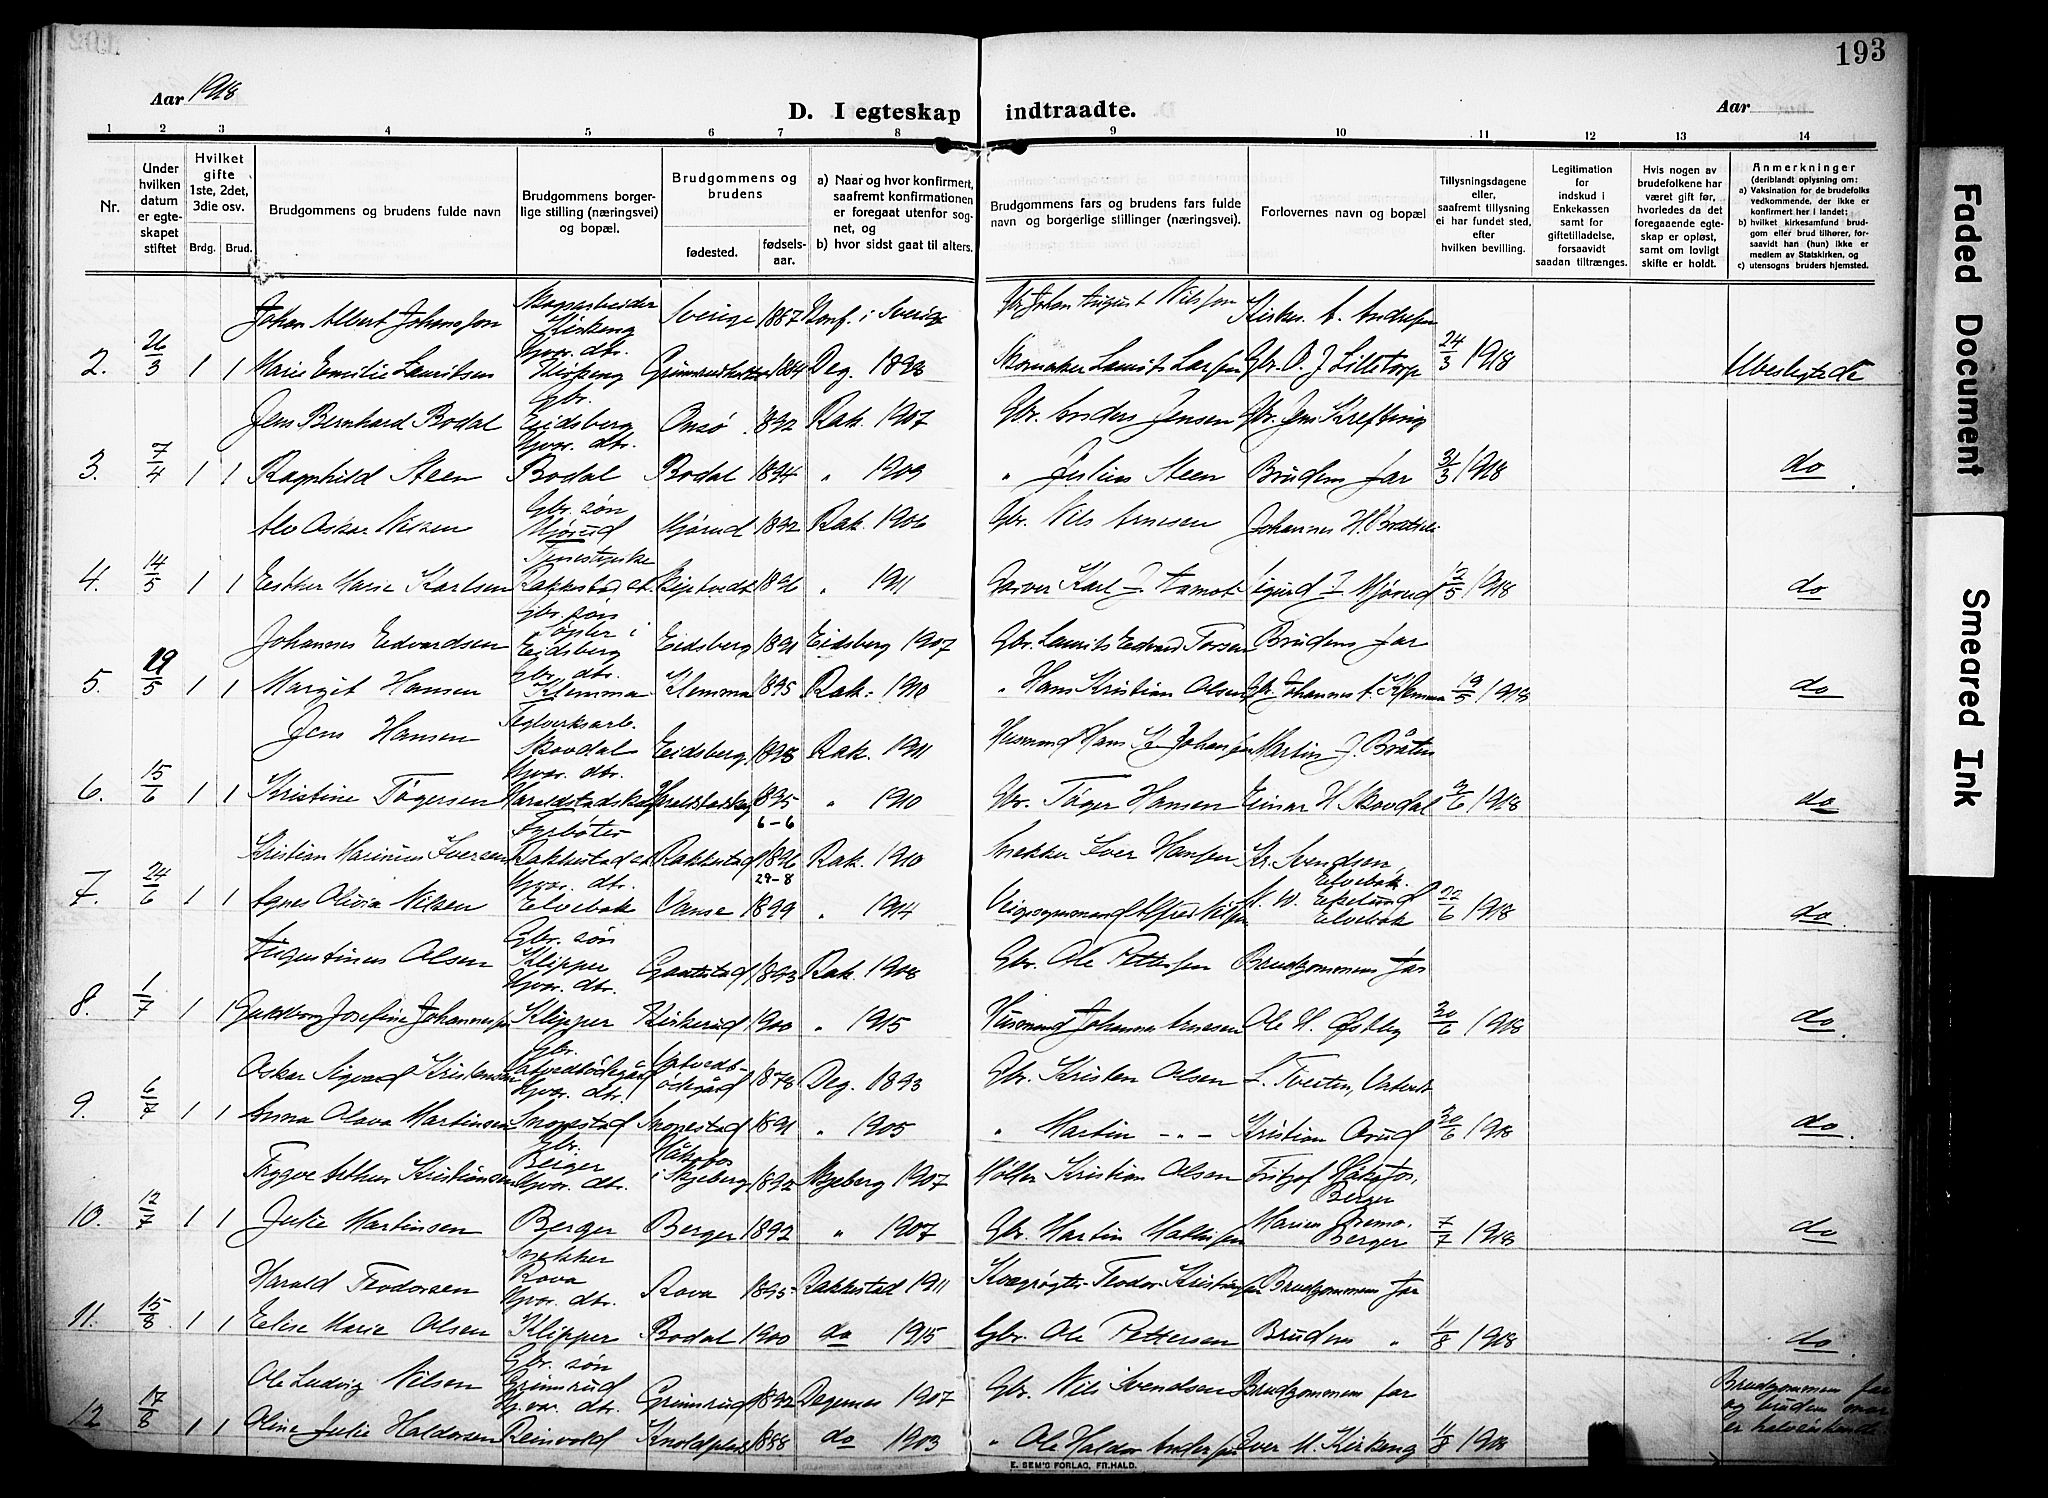 193
Aar 1918
D. I egteskap indtraadte.
Aar
1 2 3 4 5 6 7 8 9 10 11 12 13 14
Nr.
Under hvilken datum er egteskapet stiftet
Hvilket gifte 1ste, 2det, 3die osv.
Brdg. Brud.
Brudgommens og brudens fulde navn
Brudgommens borgerlige stilling (næringsvei) og bopæl.
Brudgommens og brudens
fødested.
fødselsaar.
a) Naar og hvor konfirmert, saafremt konfirmationen er foregaat utenfor sognet, og
b) hvor sidst gaat til alters.
Brudgommens fars og brudens fars fulde navn og borgerlige stillinger (næringsvei).
Forlovernes navn og bopæl
Tillysningsdagene eller, saafremt tillysning ei har fundet sted, efter hvilken bevilling.
Legitimation for indskud i Enkekassen samt for giftetilladelse, forsaavidt saadan tiltrænges.
Hvis nogen av brudefolkene har været gift før, hvorledes da det foregaaende egteskap er opløst, samt om lovligt skifte er holdt.
Anmerkninger (deriblandt oplysning om:
a) Vaksination for de brudefolks vedkommende, der ikke er konfirmert her i landet;
b) hvilket kirkesamfund brudgom eller brud tilhører, forsaavidt han (hun) ikke er medlem av Statskirken, og
c) utensogns bruders hjemsted.
Johan Albert Johansson Kirkeng Sverige 1887 Konf. i Sverige Gbr. Johan August Nilsson A. Andresen
2. 26/3 1 1 Marie Emilie Lauritsen Gvar. dtr. Kirkeng Deg. 1898 Skomaker Laurits Larsen Gbr. O. J. Lilletorp 24/3 1918 Ubeslegtede
Jens Bernhard Bodal Gbr. Eidsberg Onsø 1892 Rak. 1907 Gbr. Anders Jensen Gbr. Jens Krefting
3. 7/4 1 1 Ragnhild Steen Gvar. dtr. Bodal Bodal 1894 " 1909 " Julius Steen Brudens far 31/3 1918 do
Alv Oskar Nilsen Gbr. søn Mjørud Mjørud 1892 Rak. 1906 Gbr. Nils Arnesen Johannes H.
4. 14/5 1 1 Esther Marie Karlsen Rakkestad st. 1896 " 1911 Karl J. Sigurd J. Mjørud 12/5 1918 do
Johannes Edvardsen Gbr. søn i Eidsberg Eidsberg 1891 Eidsberg 1907 Gbr. Laurits Edvard Torsen Brudens far
5. 19/5 1 1 Margit Hansen Gbr. dtr. Klemma Klemma 1895 Rak. 1910 " Hans Kristian Olsen Gbr. Johannes A. Klemma 19/5 1918 do
Jens Hansen Teglverksarb. Skovdal Eidsberg 1898 Rak. 1911 Husmand Hans K. Johansen Martin J. Bråten
6. 15/6 1 1 Kristine Tøgersen Gvar. dtr. Haraldstadskog Haraldstadskog 1895 " 1910 Gbr. Tøger Hansen Einar H. Skovdal 9/6 1918 do
Kristian Marinus Iversen Fyrbøter Rakkestad st. Rakkestad 6-6 1896 Rak. 1910 Snekker Iver Hansen Kr. Svendsen, Elvebak.
7. 24/6 1 1 Agnes Olivia Nilsen Gvar. dtr. Elvebak Vanse 29-8 1899 " 1914 Alfred Nilsen N. W. Ekelund Elvebak 22/6 1918 do
Augustinus Olsen Gbr. søn Klipper Gautestad 1893 Rak. 1908 Gbr. Ole Pettersen Brudgommens far
8. 1/7 1 1 Guldborg Josefine Johannessen Gvar. dtr. Klipper Kirkerud 1900 " 1915 Husmand Johannes Arnesen Ole H. Østby 30/6 1918 do
Oskar Sigvard Kristensen Gbr. 1878 Deg. 1893 Gbr. Kristen Olsen L. Tveiten,
9. 6/7 1 1 Anna Olava Martinsen Gvar. dtr. Snopestad Snopestad 1891 " 1905 " Martin - " - Kristian Orud 30/6 1918 do
Trygve Arthur Kristiansen Gbr. Berger Håkafos i Skjeberg 1892 Skjeberg 1907 Møller Kristian Olsen Fritjof Håkafos, Berger
10. 12/7 1 1 Julie Martinsen Gvar. dtr. Berger Berger 1892 " 1907 Gbr. Martin Mathisen Marius Bremo. Berger 7/7 1918 do
Harald Teodorsen Snekker Rova Rova 1895 Rakkestad 1911 Kvægrøgter Teodor Kristiansen Brudgommens far
11. 15/8 1 1 Elise Marie Olsen Gvar. dtr. Klipper Bodal 1900 do 1915 Gbr. Ole Pettersen Brudens " 11/8 1918 do
Ole Ludvig Nilsen Gbr. søn Grimsrud Grimsrud 1892 Degernes 1907 Gbr. Nils Svendsen Brudgommens far Brudgommens far og brudens mor er halvsøskende
12 17/8 1 1 Oline Julie Haldorsen Gvar. dtr. Reinvold 1888 do 1903 " Ole Haldor Andersen Iver M. Kirkeng 11/8 1918
E. SEM'S FORLAG, FR.HALD.
Faded Document
Smeared Ink